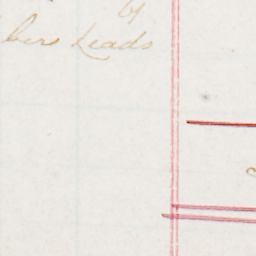 by
bers Leads